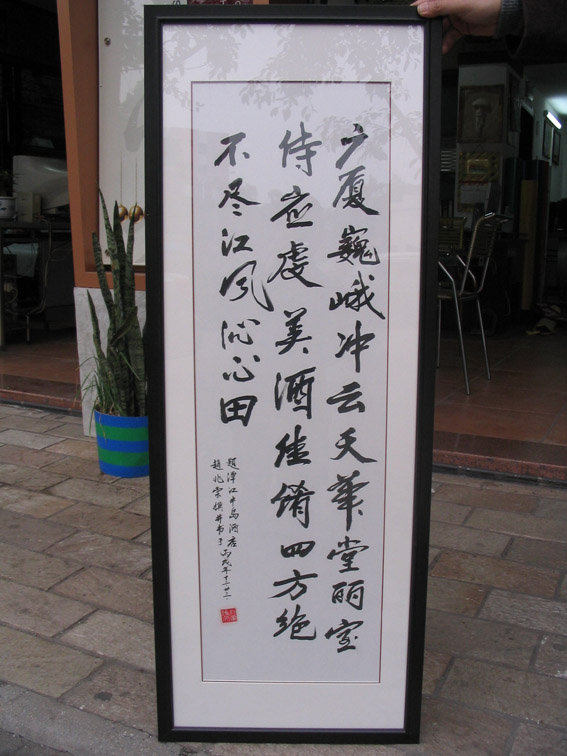 广厦巍峨冲云天華堂丽室
侍应虔美酒佳餚四方绝
不尽江风沁心田
題潭江半岛酒店
撰并书于丙戌年十二廿三